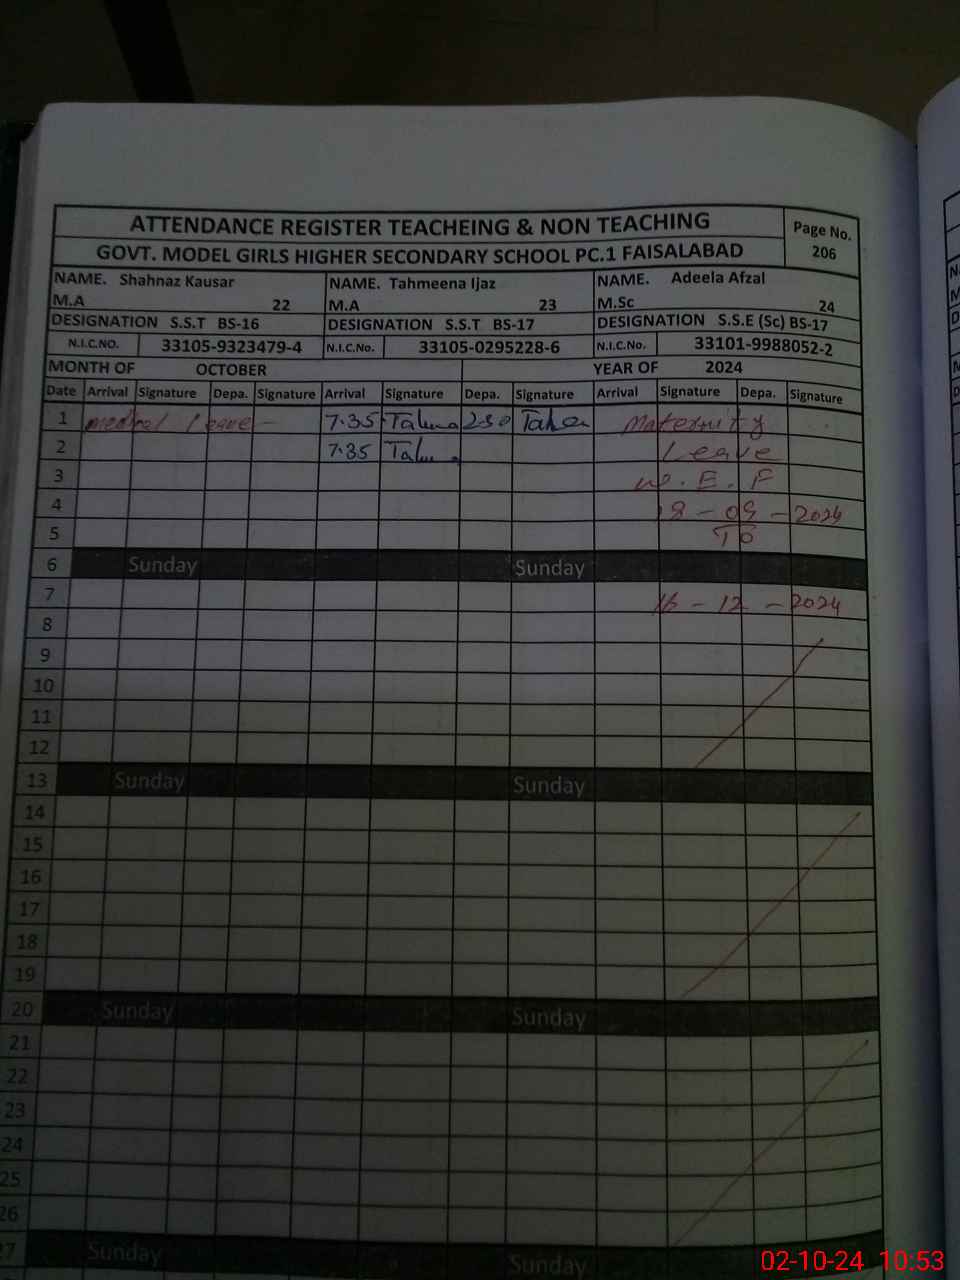 ATTENDANCE REGISTER TEACHEING & NON TEACHING
Page No. 206
GOVT. MODEL GIRLS HIGHER SECONDARY SCHOOL PC.1 FAISALABAD
NAME. Shahnaz Kausar NAME. Tahmeena Ijaz NAME. Adeela Afzal
M.A 22 M.A 23 M.Sc 24
DESIGNATION S.S.T BS-16 DESIGNATION S.S.T BS-17 DESIGNATION S.S.E (Sc) BS-17
N.I.C.NO. 33105-9323479-4 N.I.C.No. 33105-0295228-6 N.I.C.No. 33101-9988052-2
MONTH OF OCTOBER YEAR OF 2024
Date Arrival Signature Depa. Signature Arrival Signature Depa. Signature Arrival Signature Depa. Signature
1 Leave 7.35 250 Maternity
2 7.35 Leave
3 W.E.F
4 - 09 - 2024
5 To
6 Sunday Sunday
7 16 - 12 - 2024
8
9
10
11
12
13 Sunday Sunday
14
15
16
17
18
19
20 Sunday Sunday
21
22
23
24
25
26
27 Sunday Sunday
02-10-24 10:53